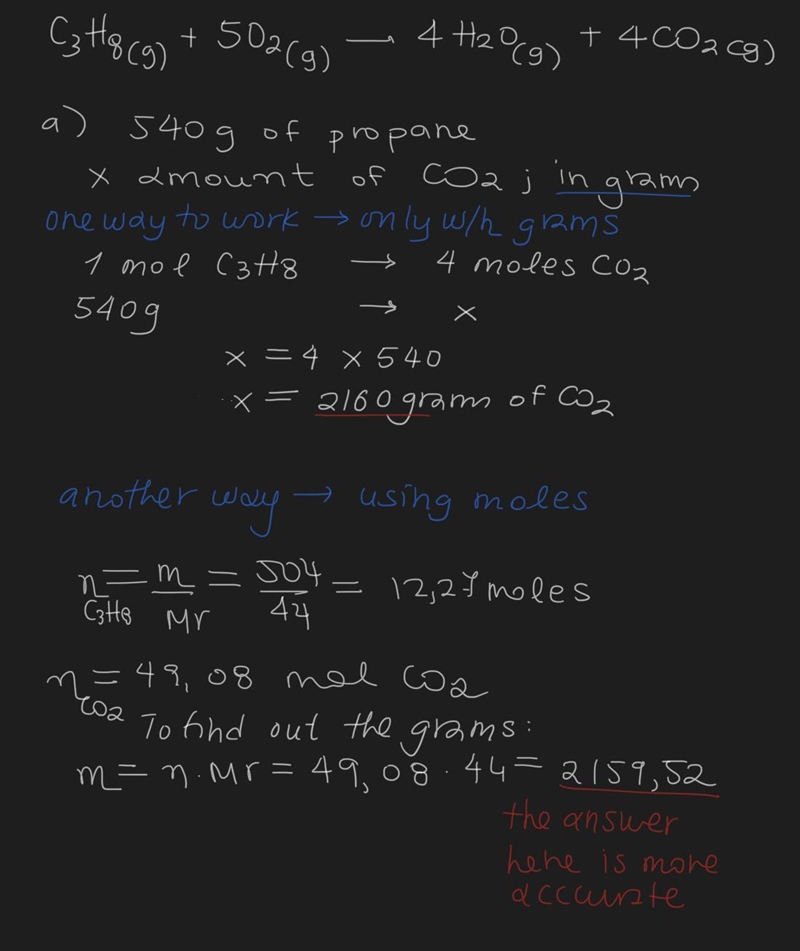 C3H8(g) + 5O2(g) — 4H2O(g) + 4CO2(g)
a) 540g of propane
x amount of CO2; in grams
one way to work → only w/h grams
1 mol C3H8 → 4 moles CO2
540g → x
x = 4 x 540
x = 2160 grams of CO2
another way → using moles
n C3H8 = m/Mr = 504/44 = 12,27 moles
n CO2 = 49,08 mol CO2
To find out the grams:
m = n.Mr = 49,08 . 44 = 2159,52
the answer
here is more
accurate